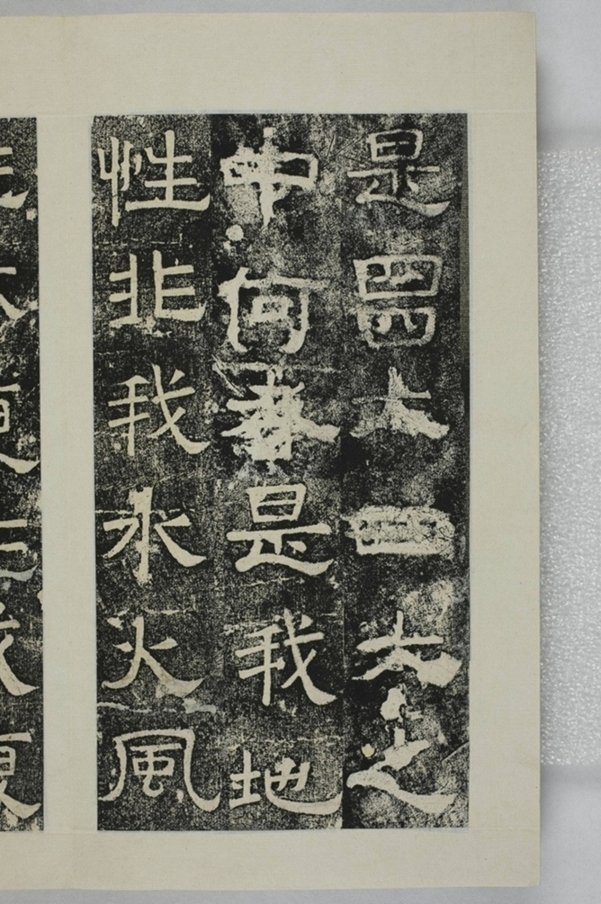 是四大四大之
中何者是我地
性非我水火風